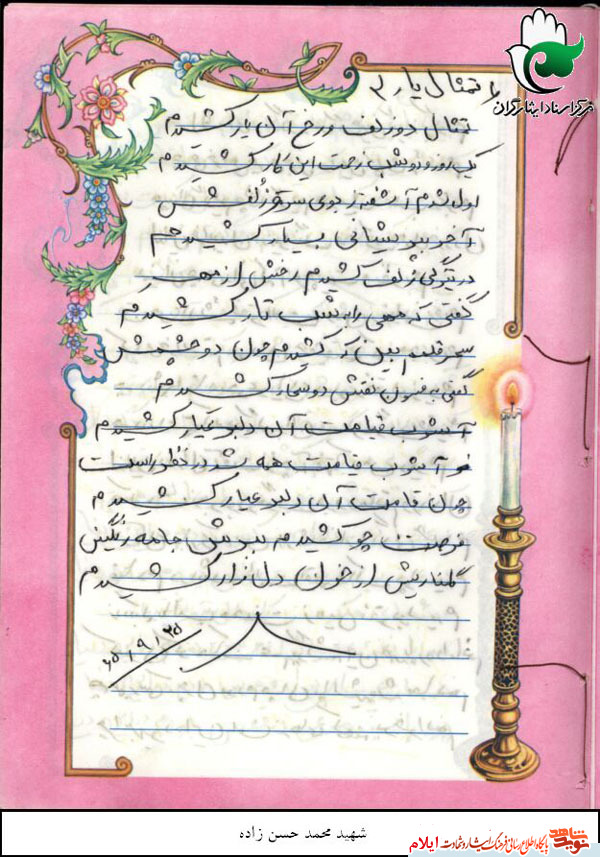 تمثال یار ۲
تمثال دو زلف و رخ آن یار کشیدم
یک روز و دو شب زحمت این کار کشیدم
اول شدم آشفته ز بوی سر زلفش
آخر به پریشانی بسیار کشیدم
در تیرگی زلف کشیدم رخش از مهر
گفتی که مهی را به شب تار کشیدم
سحر قلمم بین که کشیدم چون دو چشمش
گفتی به فسون نقش دو سحار کشیدم
آشوب قیامت آن دلبر عیار کشیدم
آشوب قیامت همه شد در نظرم راست
چون قامت آن دلبر عیار کشیدم
فرصت چو کشیدم به برش جامه رنگین
گلناریش از خون دل زار کشیدم
۶۵/۹/۲۵
مرکز اسناد ایثارگران
شهید محمد حسن زاده
نوید شاهد
پایگاه اطلاع رسانی فرهنگ ایثار و شهادت ایلام